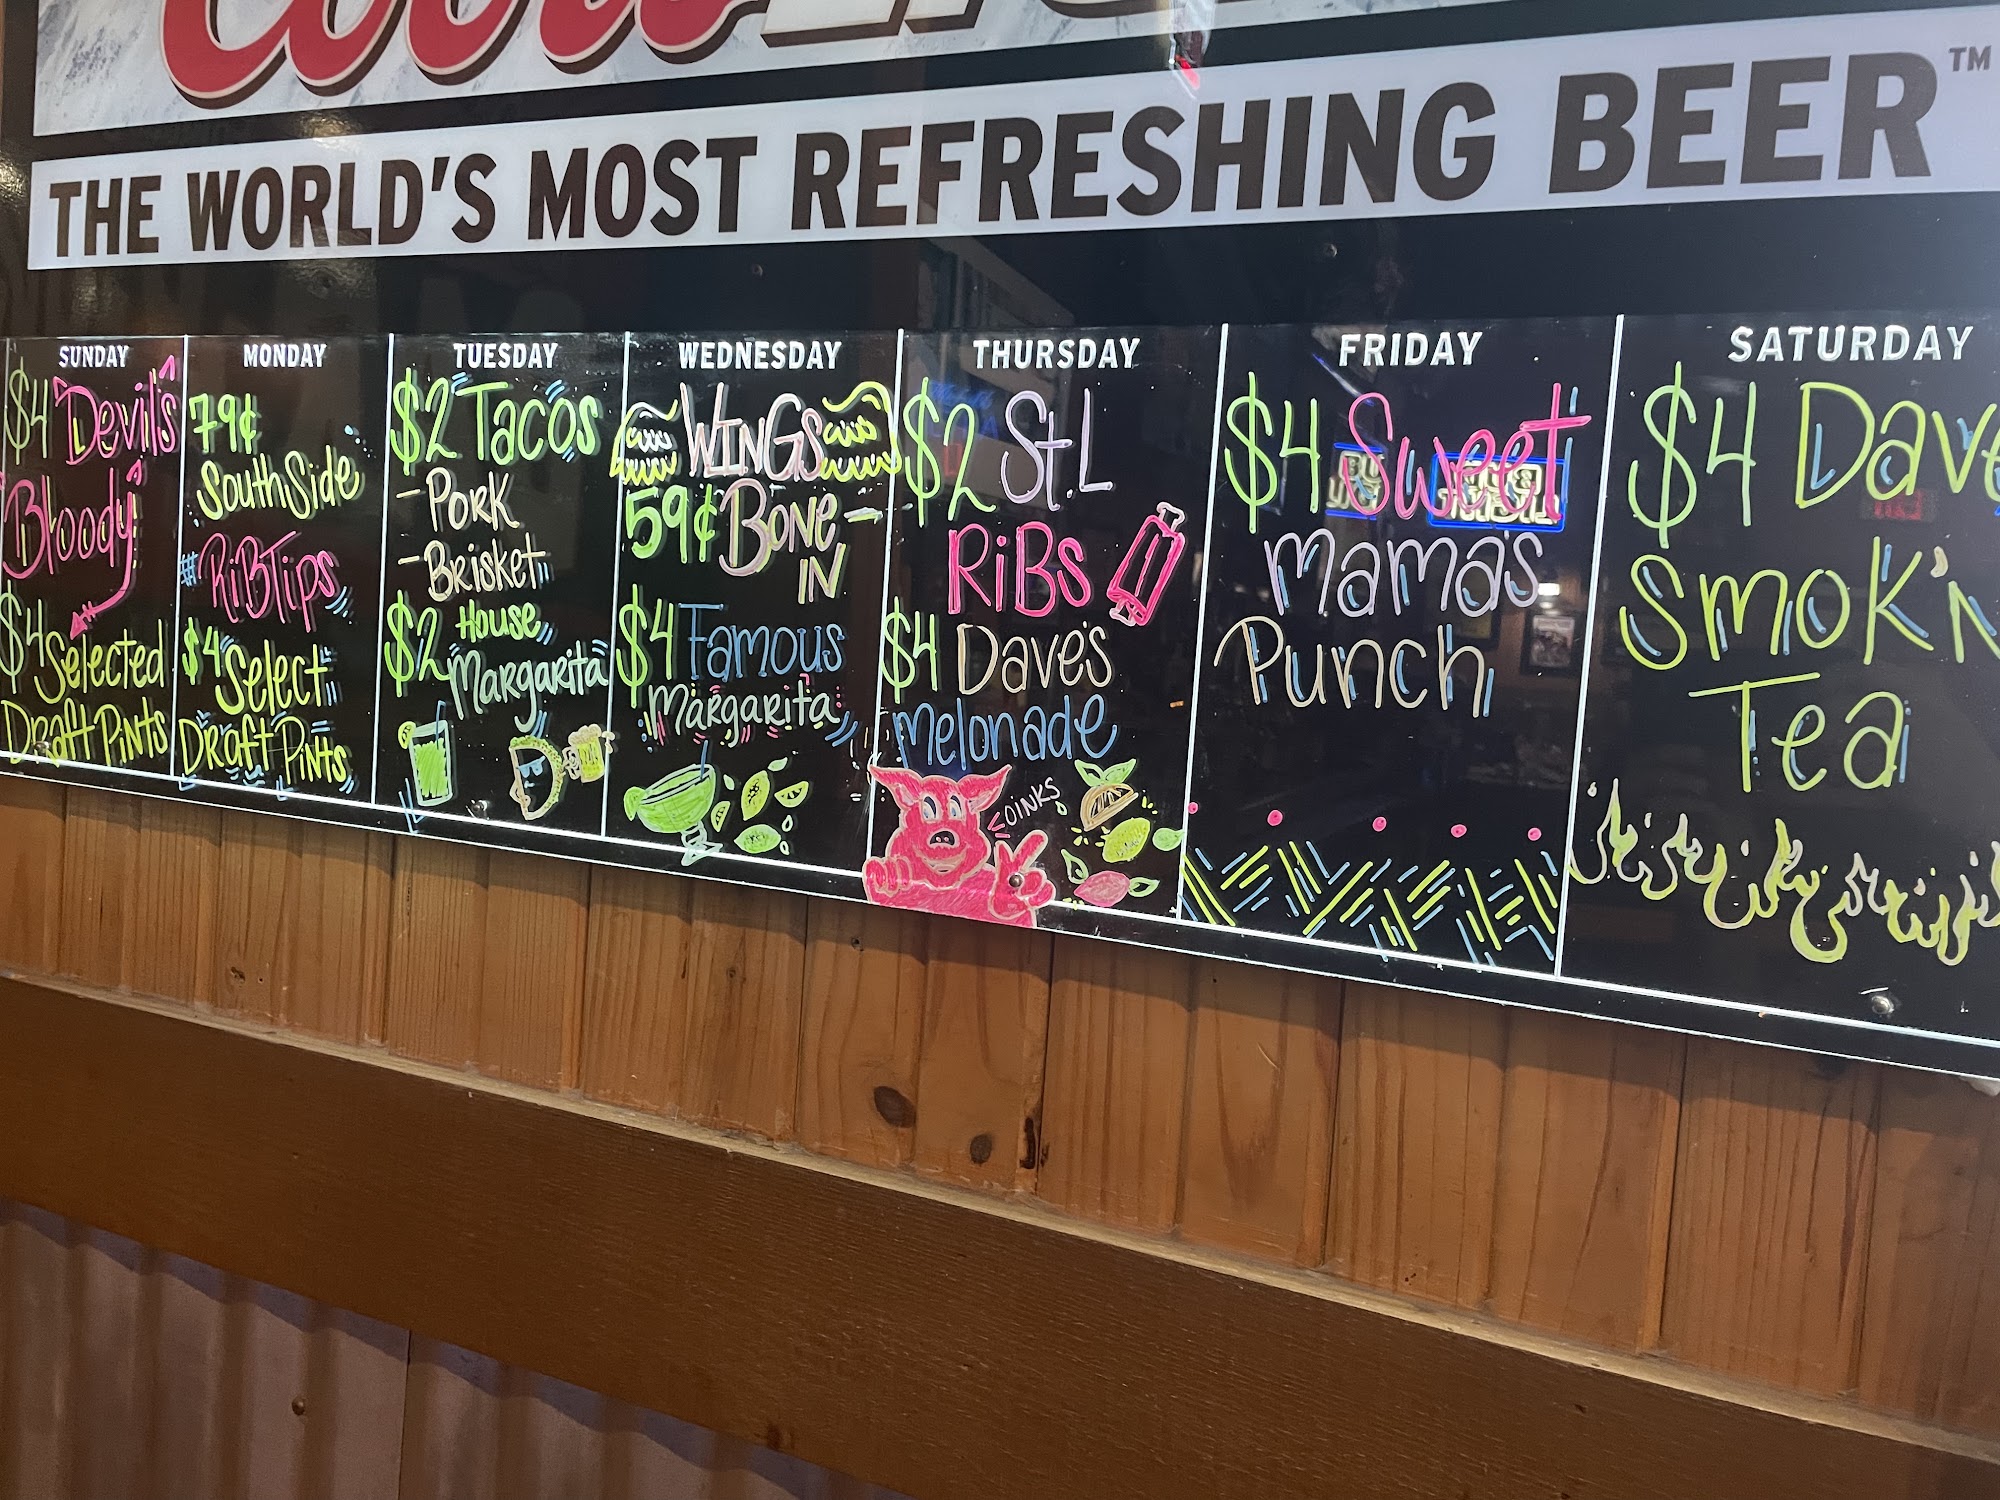 Coors
THE WORLD'S MOST REFRESHING BEER™
SUNDAY
$4 Devil's
Bloody
$4 Selected
Draft Pints
MONDAY
79¢
SouthSide
RiBTips
$4 Select
Draft Pints
TUESDAY
$2 Tacos
- Pork
- Brisket
$2 House
Margarita
WEDNESDAY
WINGS
59¢ Bone-
IN
$4 Famous
Margarita
THURSDAY
$2 St.L
RiBS
$4 Dave's
Melonade
OINKS
FRIDAY
$4 Sweet
Mama's
Punch
SATURDAY
$4 Dave
Smok'n
Tea